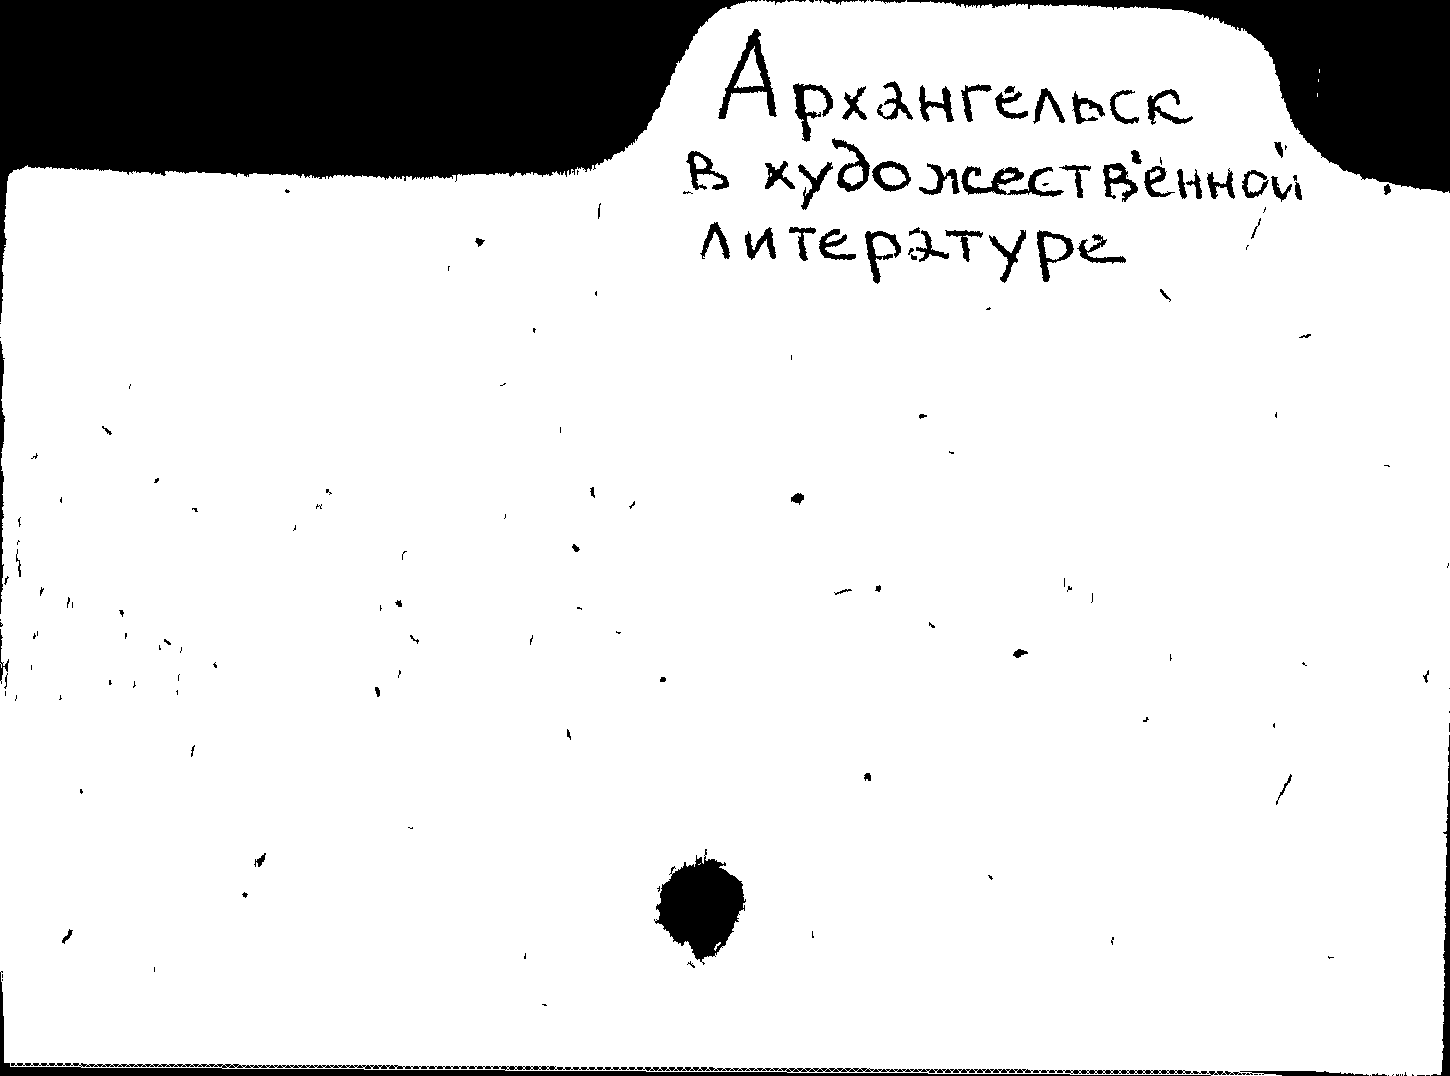 Архангельск
в художественной
литературе